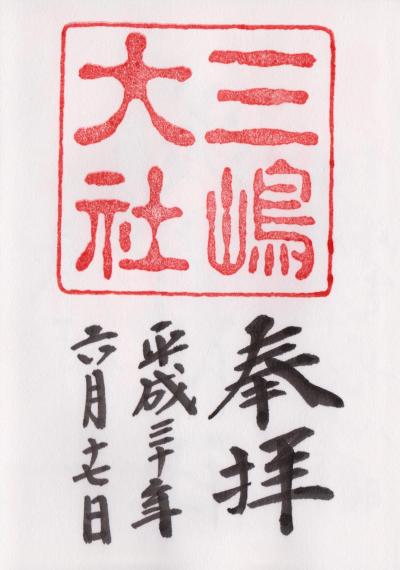 三嶋
大社
奉拝
平成三十年
六月十七日